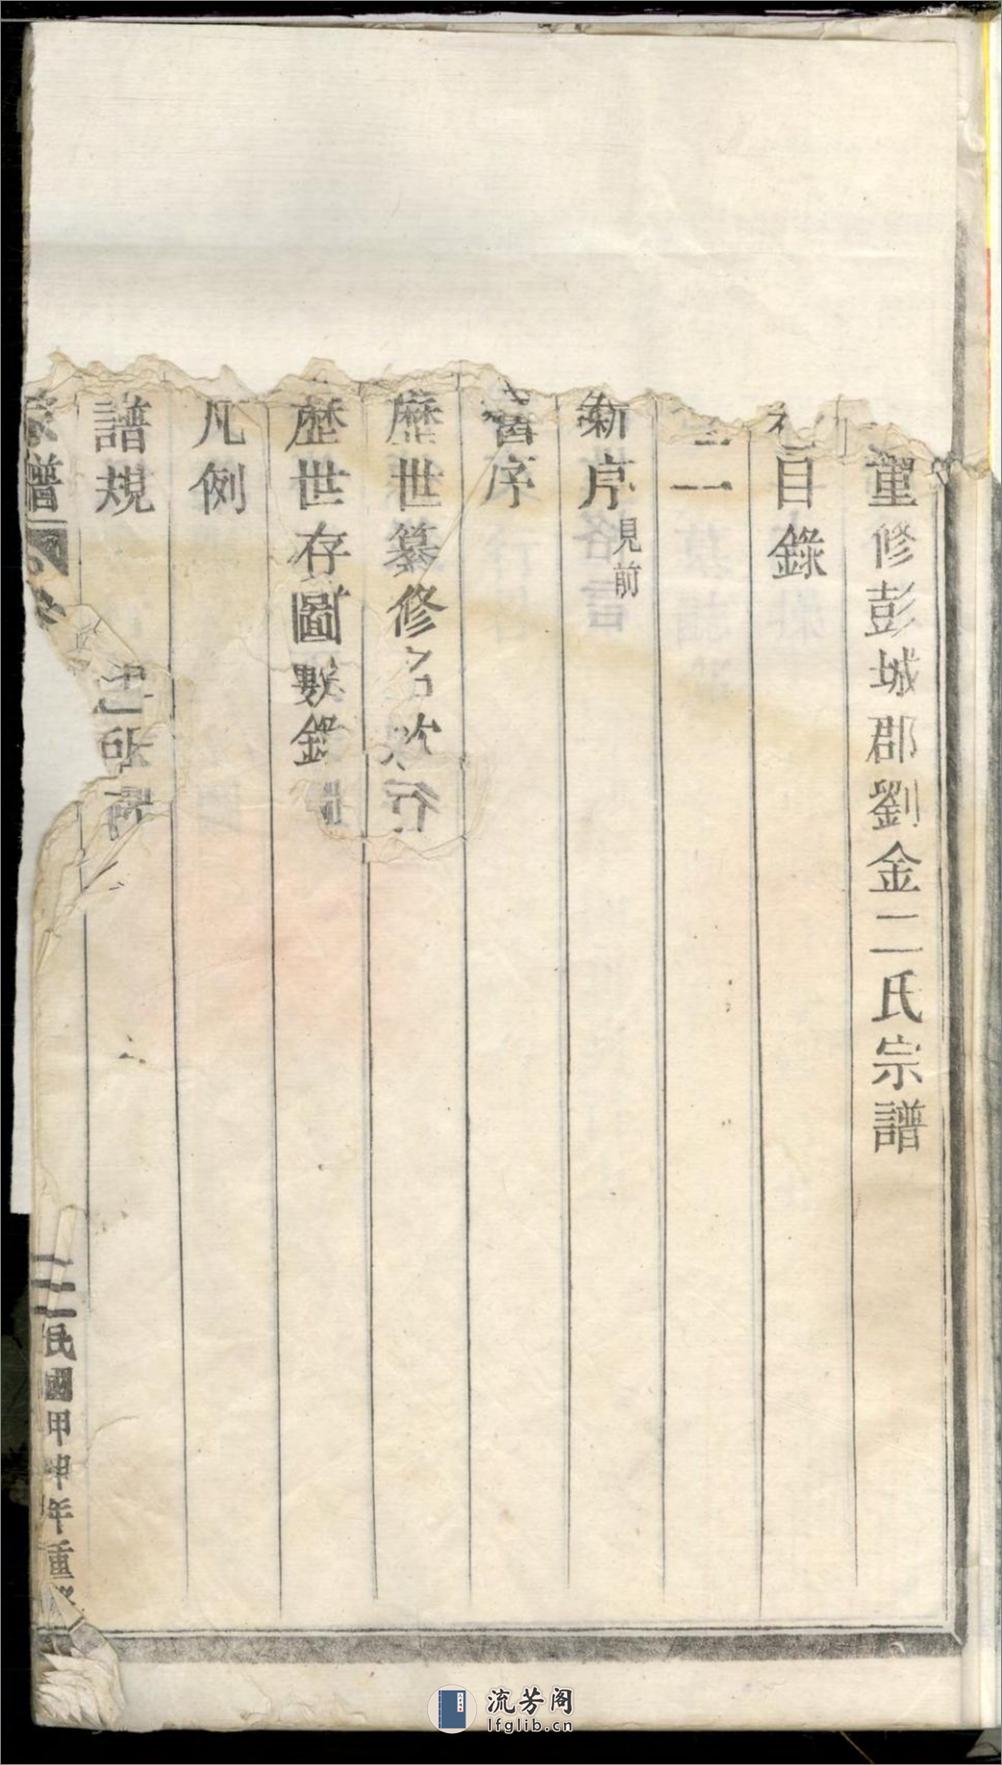 重修彭城郡劉金二氏宗譜
目錄
二
新序 見前
舊序
歷世纂修名
歷世存圖數錄
凡例
譜規
譜
民國甲申年重
流芳阁
lfglib.cn